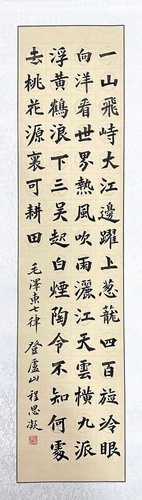 一山飛峙大江邊躍上葱龍四百旋冷眼
向洋看世界熱風吹雨灑江天雲橫九派
浮黃鶴浪下三吳起白煙陶令不知何處
去桃花源裏可耕田 毛澤東七律 登廬山 程思凝